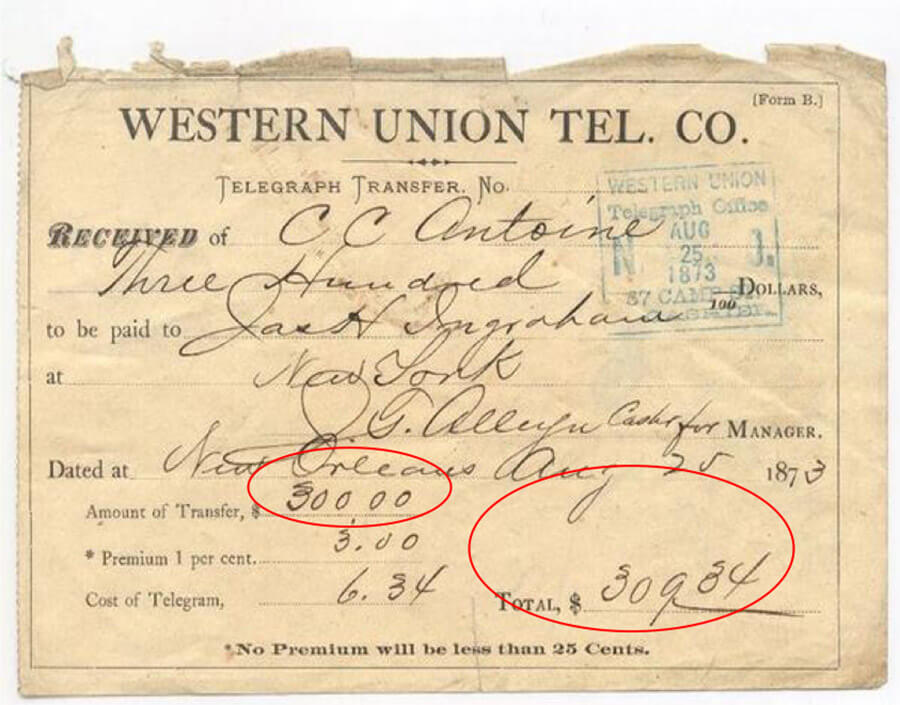 [Form B.]
WESTERN UNION TEL. CO.
TELEGRAPH TRANSFER. No.
WESTERN UNION
Telegraph Office
AUG
25
N 1873 O.
RECEIVED of C C Antoine
Three Hundred 100 DOLLARS,
to be paid to Jas H Ingraham
at New York
J G. Alleyn Cashr for MANAGER.
Dated at New Orleans Aug 25 1873
Amount of Transfer, $ 300.00
* Premium 1 per cent. 3.00
Cost of Telegram, 6.34 TOTAL, $ 309 34
*No Premium will be less than 25 Cents.